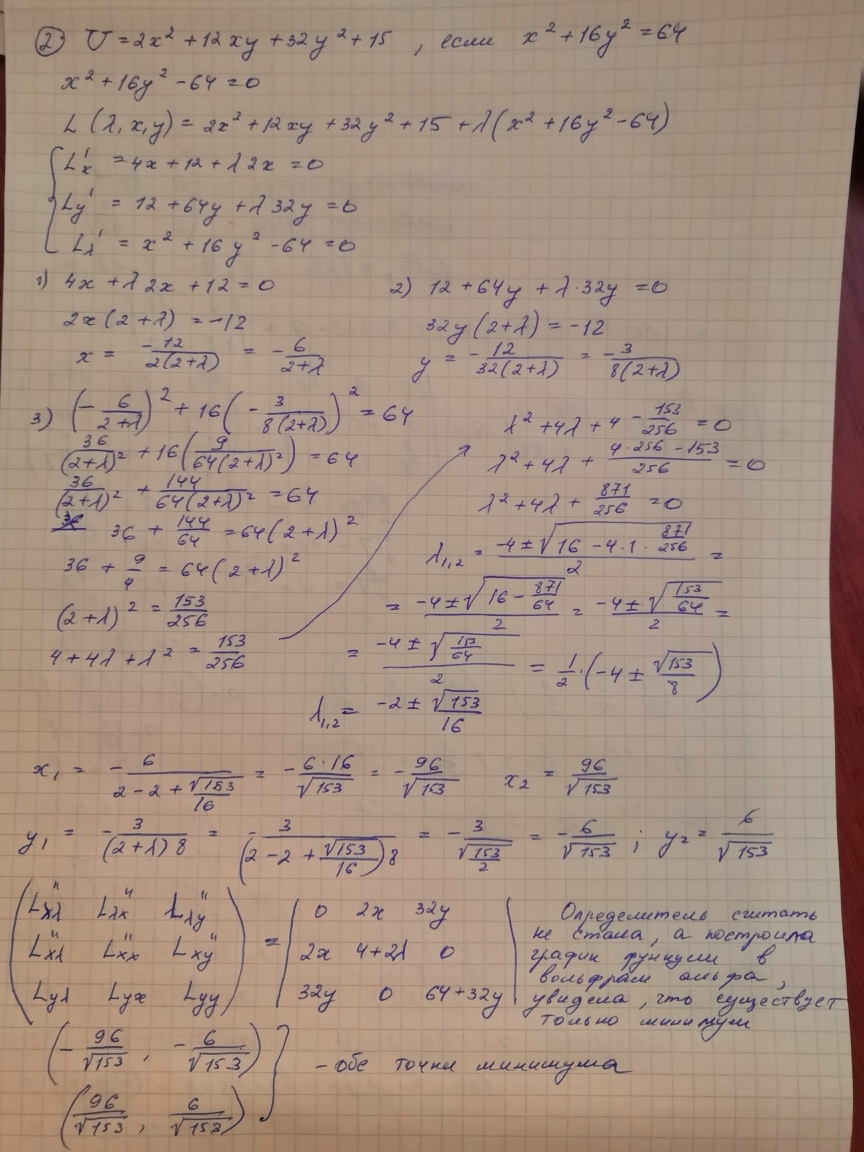 2) U = 2x² + 12xy + 32y² + 15 , если x² + 16y² = 64
x² + 16y² - 64 = 0
L(λ, x, y) = 2x² + 12xy + 32y² + 15 + λ(x² + 16y² - 64)
L'x = 4x + 12 + λ2x = 0
Ly' = 12 + 64y + λ32y = 0
Lλ' = x² + 16y² - 64 = 0
1) 4x + λ2x + 12 = 0
2x(2+λ) = -12
x = -12/(2(2+λ)) = -6/(2+λ)
2) 12 + 64y + λ·32y = 0
32y(2+λ) = -12
y = -12/(32(2+λ)) = -3/(8(2+λ))
3) (-6/(2+λ))² + 16(-3/(8(2+λ)))² = 64
36/(2+λ)² + 16(9/(64(2+λ)²)) = 64
36/(2+λ)² + 144/(64(2+λ)²) = 64
36 + 144/64 = 64(2+λ)²
36 + 9/4 = 64(2+λ)²
(2+λ)² = 153/256
4 + 4λ + λ² = 153/256
λ² + 4λ + 4 - 153/256 = 0
λ² + 4λ + (4·256 - 153)/256 = 0
λ² + 4λ + 871/256 = 0
λ1,2 = (-4 ± √(16 - 4·1·871/256))/2 =
= (-4 ± √(16 - 871/64))/2 = (-4 ± √(153/64))/2 =
= (-4 ± √(153/64))/2 = 1/2·(-4 ± √153/8)
λ1,2 = (-2 ± √153)/16
x₁ = -6/(2 - 2 + √153/16) = -6·16/√153 = -96/√153 x₂ = 96/√153
y₁ = -3/((2+λ)8) = -3/((2 - 2 + √153/16)8) = -3/(√153/2) = -6/√153 ; y₂ = 6/√153
(Lλλ'' Lλx'' Lλy'') = |0 2x 32y|
Lxλ'' Lxx'' Lxy'' 2x 4+2λ 0
Lyλ Lyx Lyy 32y 0 64+32y
Определитель считать
не стала, а построила
график функции в
вольфрам альфа,
увидела, что существует
только минимум
(-96/√153, -6/√153)
(96/√153, 6/√153)
- обе точки минимума